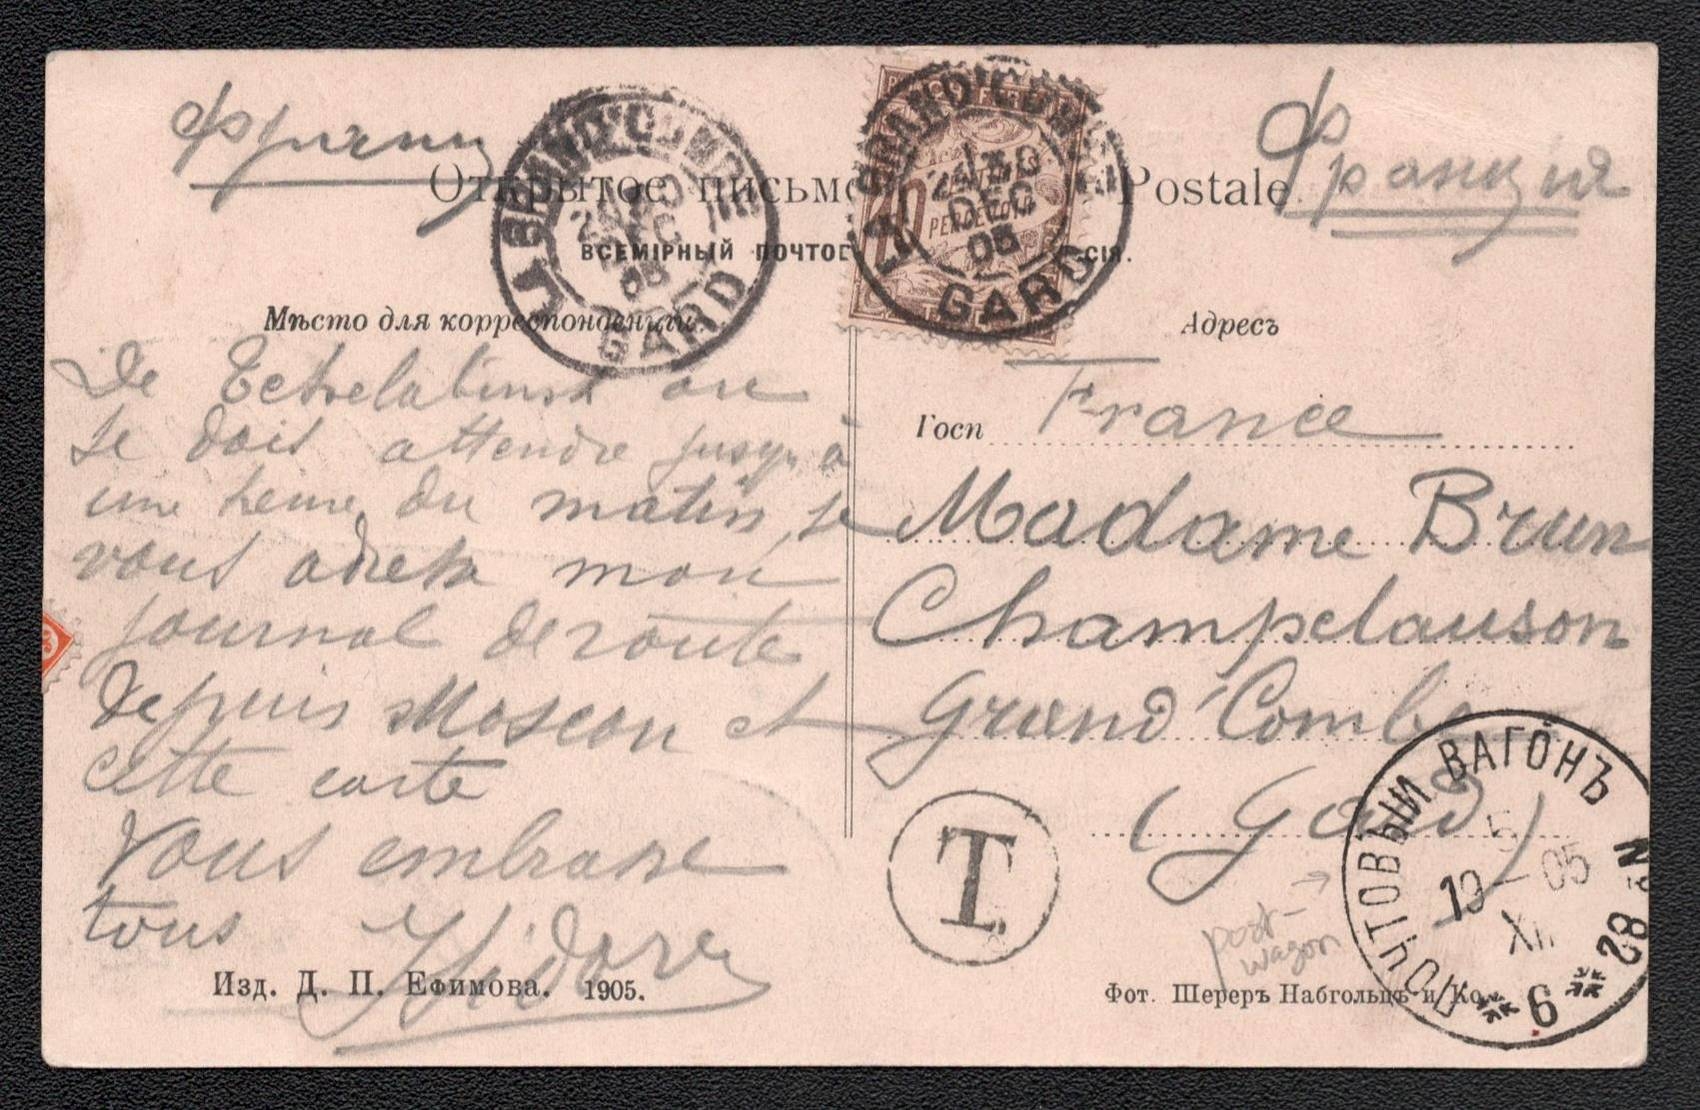 Франц
Франція
Открытое письмо
Postale
ВСЕМІРНЫЙ ПОЧТОВ
СІЯ.
LA GRAND'COMBE
DEC
05
GARD
LA GRAND'COMBE
DEC
05
GARD
20
PERCEVOIR
Мѣсто для корреспонденціи.
Адресъ
De Tchelabinsk ou
je dois attendre jusqu'à
une heure du matin, je
vous adresse mon
journal de route
depuis Moscou et
cette carte
Vous embrasse
tous Isidore
France
Госп
Madame Brun
Champclauson
Grand'Combe
(Gard)
T
post-
wagon
ПОЧТОВЫЙ ВАГОНЪ № 28
5
19 - 05
XII
6
Изд. Д. П. Ефимова. 1905.
Фот. Шереръ Набгольцъ и Ко.